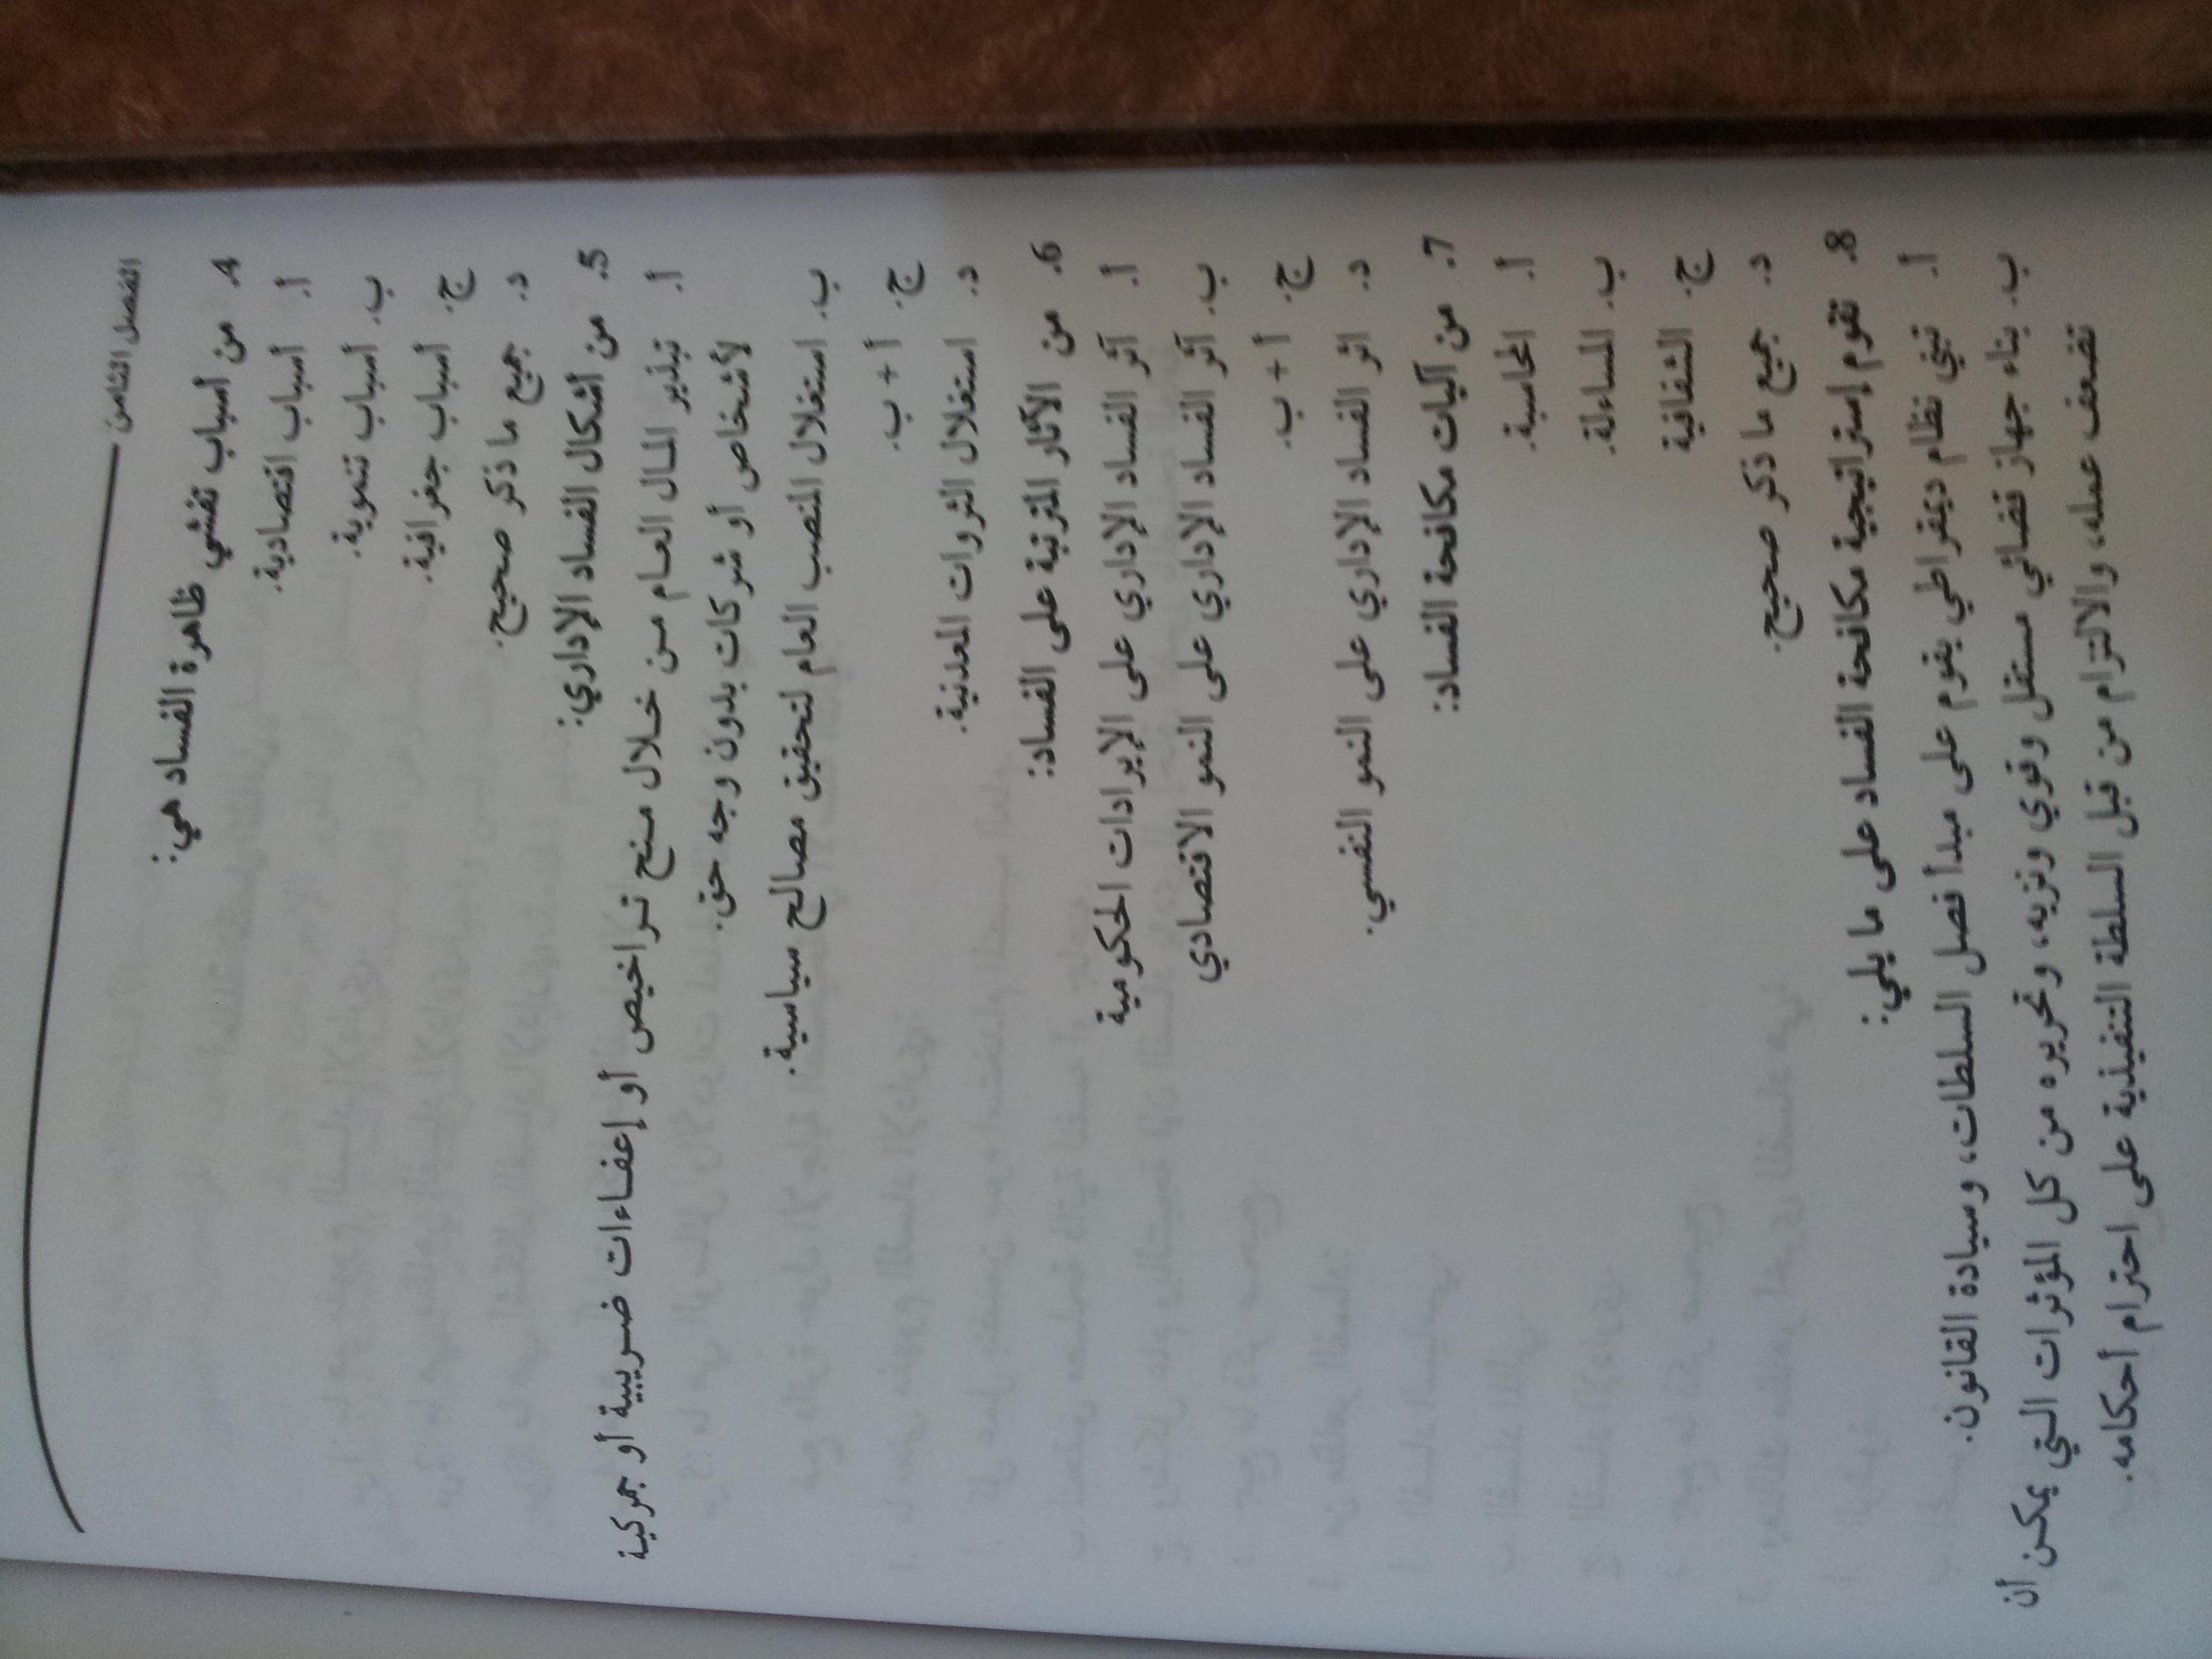 الفصل الثامن
4. من أسباب تفشي ظاهرة الفساد هي:
أ. أسباب اقتصادية.
ب. أسباب تنموية.
ج. أسباب جغرافية.
د. جميع ما ذكر صحيح.
5. من أشكال الفساد الإداري:
أ. تبذير المال العام من خلال منح تراخيص أو إعفاءات ضريبية أو جمركية
لأشخاص أو شركات بدون وجه حق.
ب. استغلال المنصب العام لتحقيق مصالح سياسية.
ج. أ + ب.
د. استغلال الثروات المعدنية.
6. من الآثار المترتبة على الفساد:
أ. آثر الفساد الإداري على الإيرادات الحكومية
ب. آثر الفساد الإداري على النمو الاقتصادي
ج. أ + ب.
د. اثر الفساد الإداري على النمو النفسي.
7. من آليات مكافحة الفساد:
أ. المحاسبة.
ب. المساءلة.
ج. الشفافية
د. جميع ما ذكر صحيح.
8. تقوم إستراتيجية مكافحة الفساد على ما يلي:
أ. تبني نظام ديمقراطي يقوم على مبدأ فصل السلطات، وسيادة القانون.
ب. بناء جهاز قضائي مستقل وقوي ونزيه، وتحريره من كل المؤثرات التي يمكن أن
تضعف عمله، والالتزام من قبل السلطة التنفيذية على احترام أحكامه.